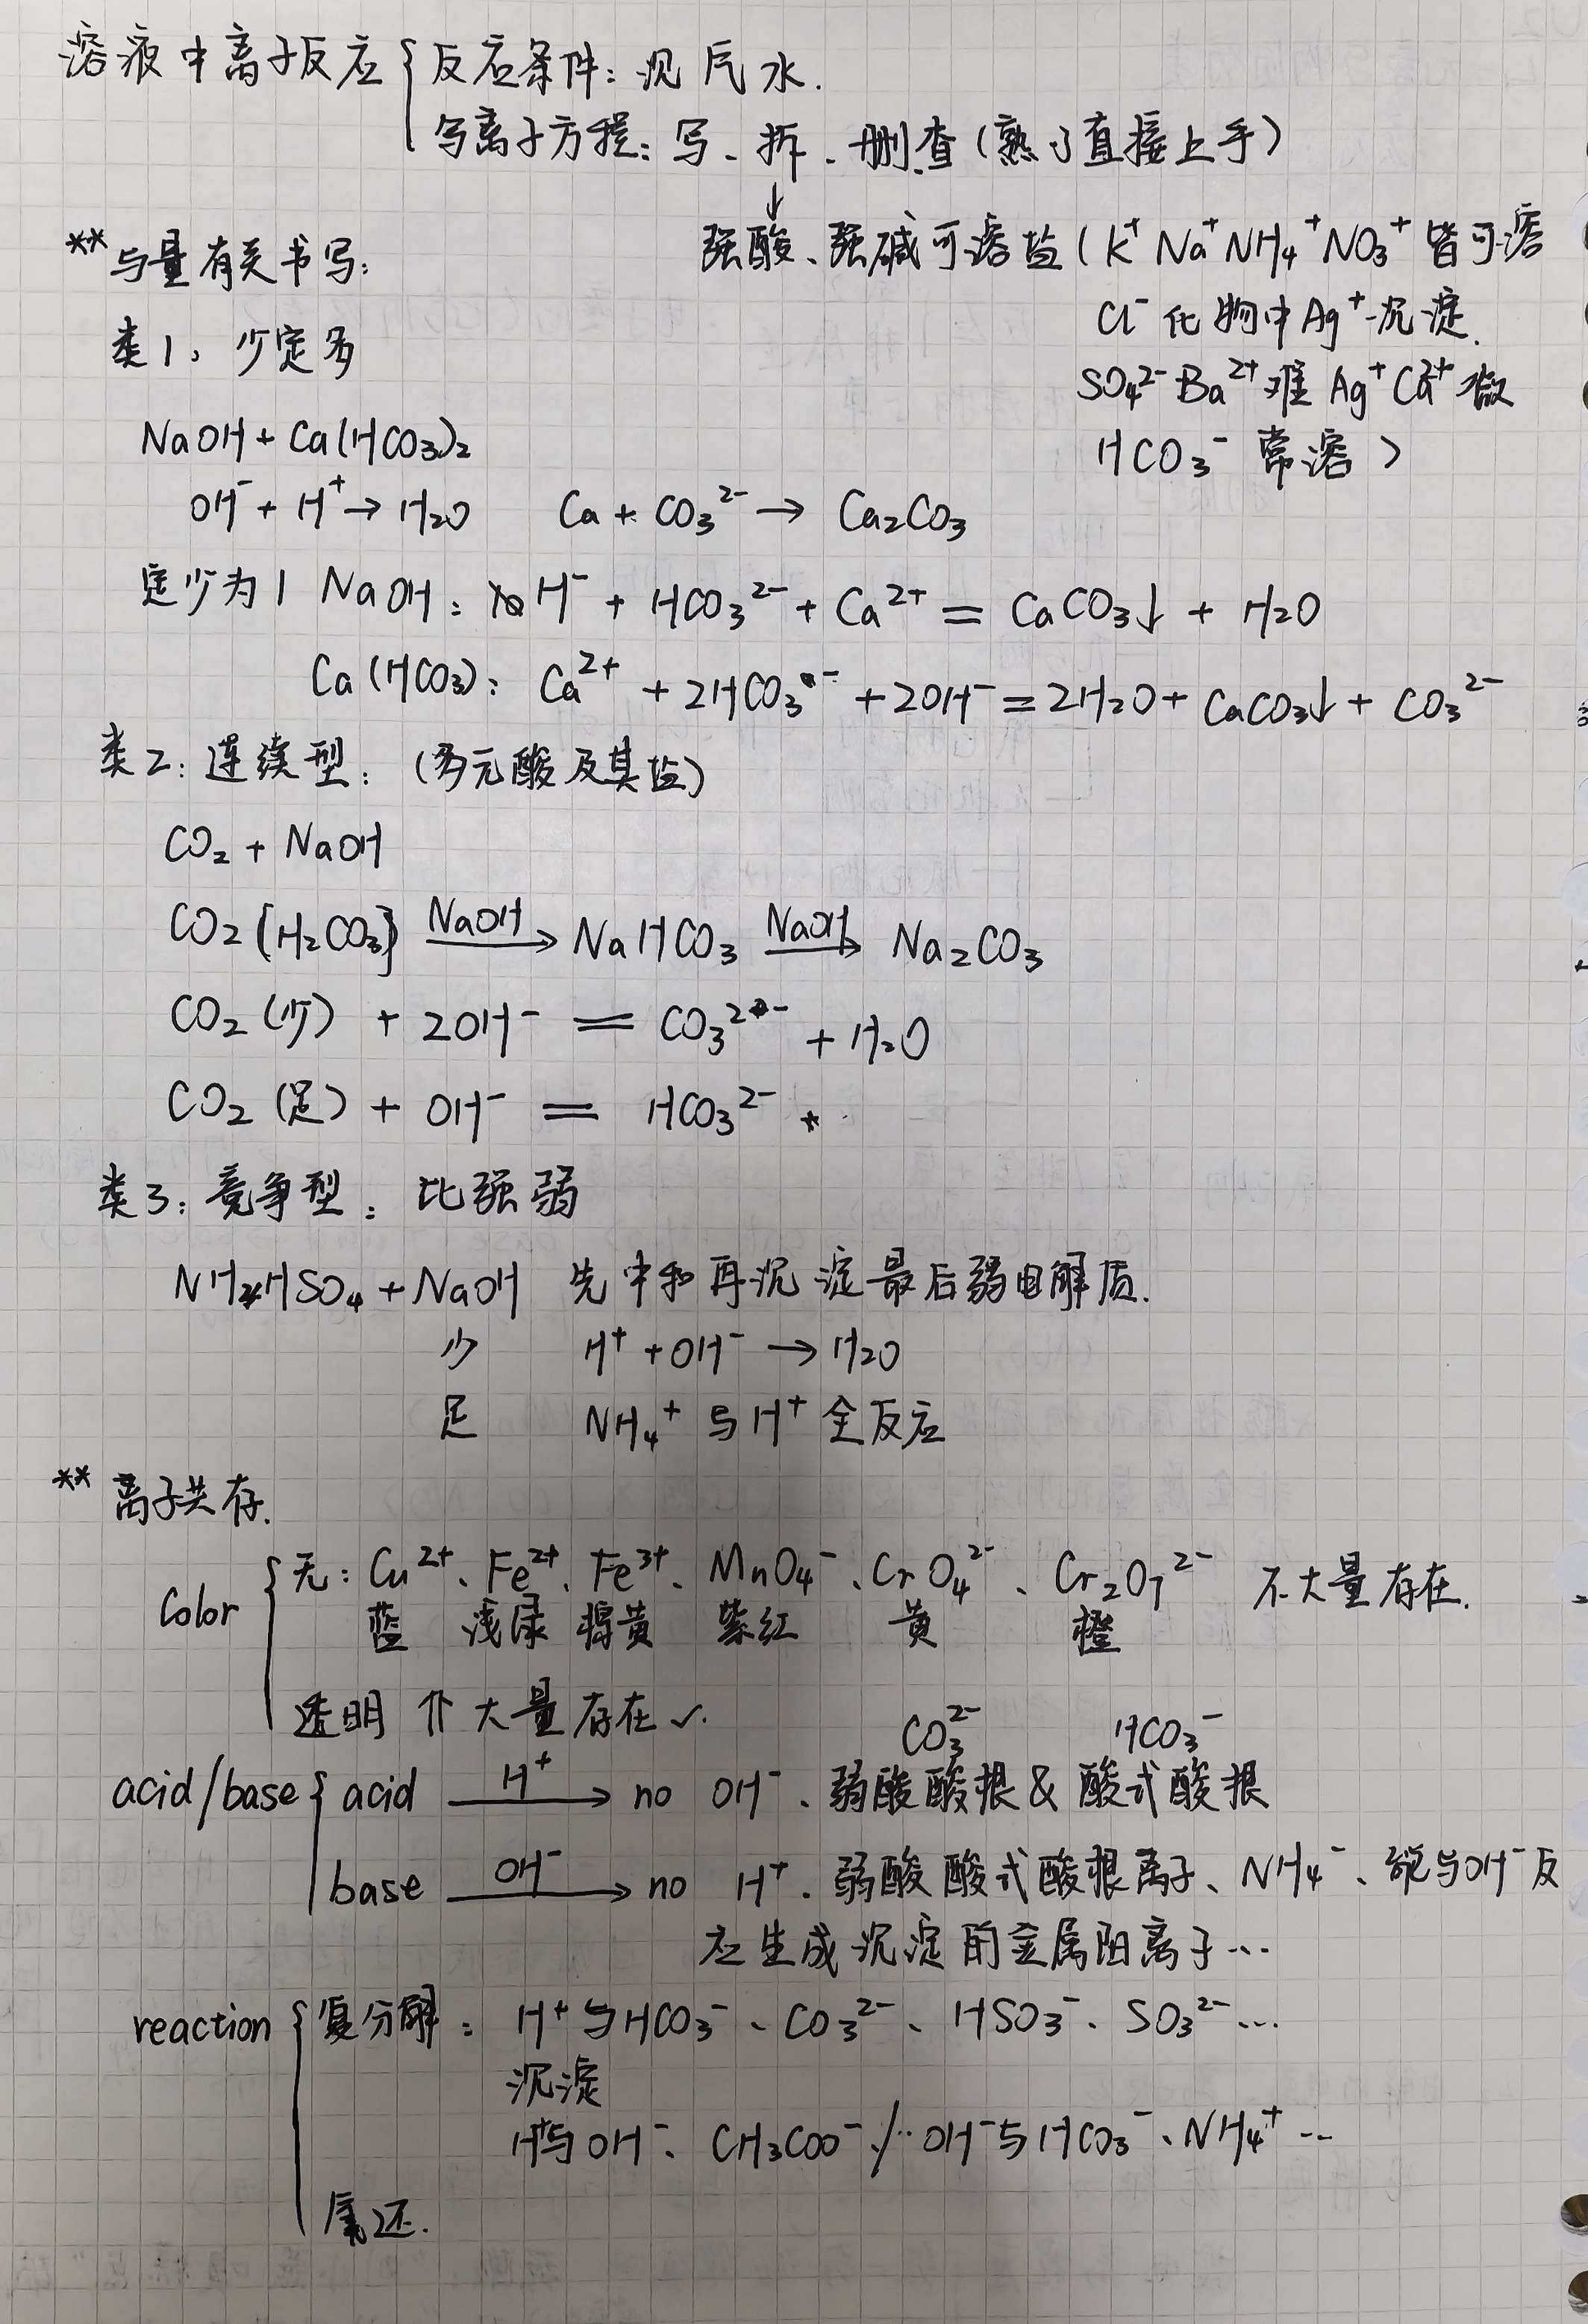 溶液中离子反应 { 反应条件: 沉 气 水.
写离子方程: 写、拆、删.查 (熟了直接上手)
↓
强酸、强碱可溶盐 ( K⁺ Na⁺ NH₄⁺ NO₃⁺ 皆可溶
** 与量有关书写:
Cl⁻ 化物中 Ag⁺ 沉淀.
类1: 少定多
SO₄²⁻ Ba²⁺ 难 Ag⁺ Ca²⁺ 微
HCO₃⁻ 常溶 )
NaOH + Ca(HCO₃)₂
OH⁻ + H⁺ → H₂O Ca + CO₃²⁻ → Ca₂CO₃
定少为1 NaOH: OH⁻ + HCO₃²⁻ + Ca²⁺ = CaCO₃↓ + H₂O
Ca(HCO₃): Ca²⁺ + 2HCO₃⁻ + 2OH⁻ = 2H₂O + CaCO₃↓ + CO₃²⁻
类2: 连续型: (多元酸及其盐)
CO₂ + NaOH
CO₂ [H₂CO₃] —NaOH→ NaHCO₃ —NaOH→ Na₂CO₃
CO₂ (少) + 2OH⁻ = CO₃²⁻ + H₂O
CO₂ (足) + OH⁻ = HCO₃²⁻
类3: 竞争型: 比强弱
NH₄HSO₄ + NaOH 先中和再沉淀最后弱电解质.
少 H⁺ + OH⁻ → H₂O
足 NH₄⁺ 与 H⁺ 全反应
** 离子共存.
Color { 无: Cu²⁺、Fe²⁺、Fe³⁺、MnO₄⁻、CrO₄²⁻、Cr₂O₇²⁻ 不大量存在.
蓝 浅绿 棕黄 紫红 黄 橙
透明 ⇈ 大量存在 ✓.
CO₃²⁻ HCO₃⁻
acid/base { acid —H⁺→ no OH⁻、弱酸酸根 & 酸式酸根
base —OH⁻→ no H⁺、弱酸酸式酸根离子、NH₄⁻、能与OH⁻反
应生成沉淀的金属阳离子…
reaction { 复分解: H⁺与HCO₃⁻、CO₃²⁻、HSO₃⁻、SO₃²⁻…
沉淀
H⁺与OH⁻、CH₃COO⁻ / ·· OH⁻与HCO₃⁻、NH₄⁺ ··
氧还.